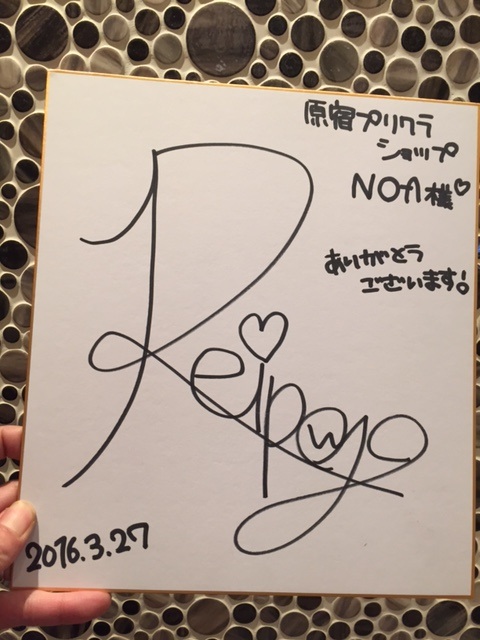 原宿プリクラ
ショップ
NOA様♡
ありがとう
ございます!
Reipoyo
2016.3.27